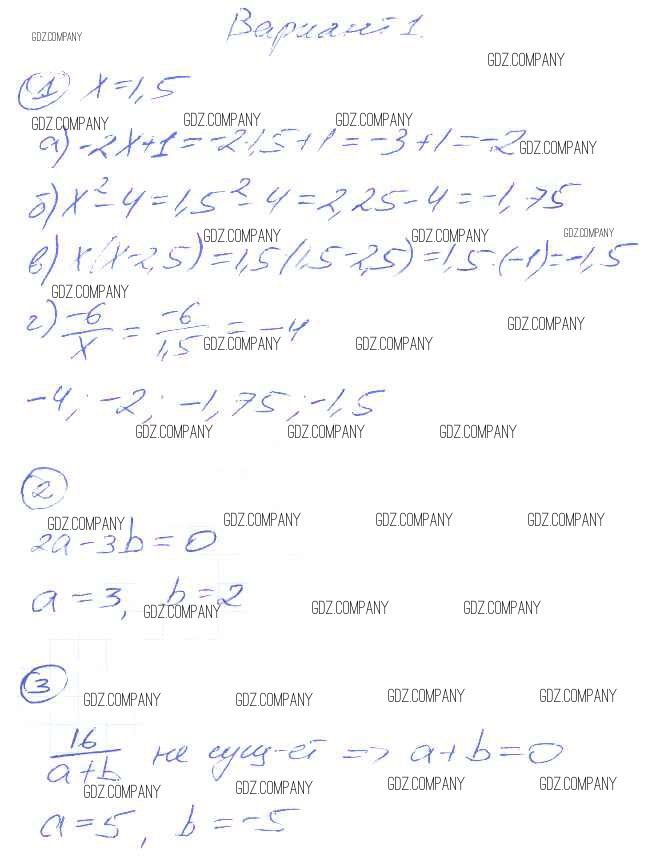 Вариант 1.
GDZ.COMPANY
GDZ.COMPANY
① x=1,5
GDZ.COMPANY GDZ.COMPANY GDZ.COMPANY
а) -2x+1=-2·1,5+1=-3+1=-2
GDZ.COMPANY
б) x²-4=1,5²-4=2,25-4=-1,75
GDZ.COMPANY GDZ.COMPANY GDZ.COMPANY
в) x(x-2,5)=1,5(1,5-2,5)=1,5·(-1)=-1,5
GDZ.COMPANY
г) -6/x = -6/1,5 = -4
GDZ.COMPANY GDZ.COMPANY GDZ.COMPANY
-4; -2; -1,75; -1,5
GDZ.COMPANY GDZ.COMPANY GDZ.COMPANY
②
GDZ.COMPANY GDZ.COMPANY GDZ.COMPANY GDZ.COMPANY
2a-3b=0
a=3, b=2
GDZ.COMPANY GDZ.COMPANY GDZ.COMPANY
③
GDZ.COMPANY GDZ.COMPANY GDZ.COMPANY GDZ.COMPANY
16/(a+b) не сущ-ет => a+b=0
GDZ.COMPANY GDZ.COMPANY GDZ.COMPANY GDZ.COMPANY
a=5, b=-5